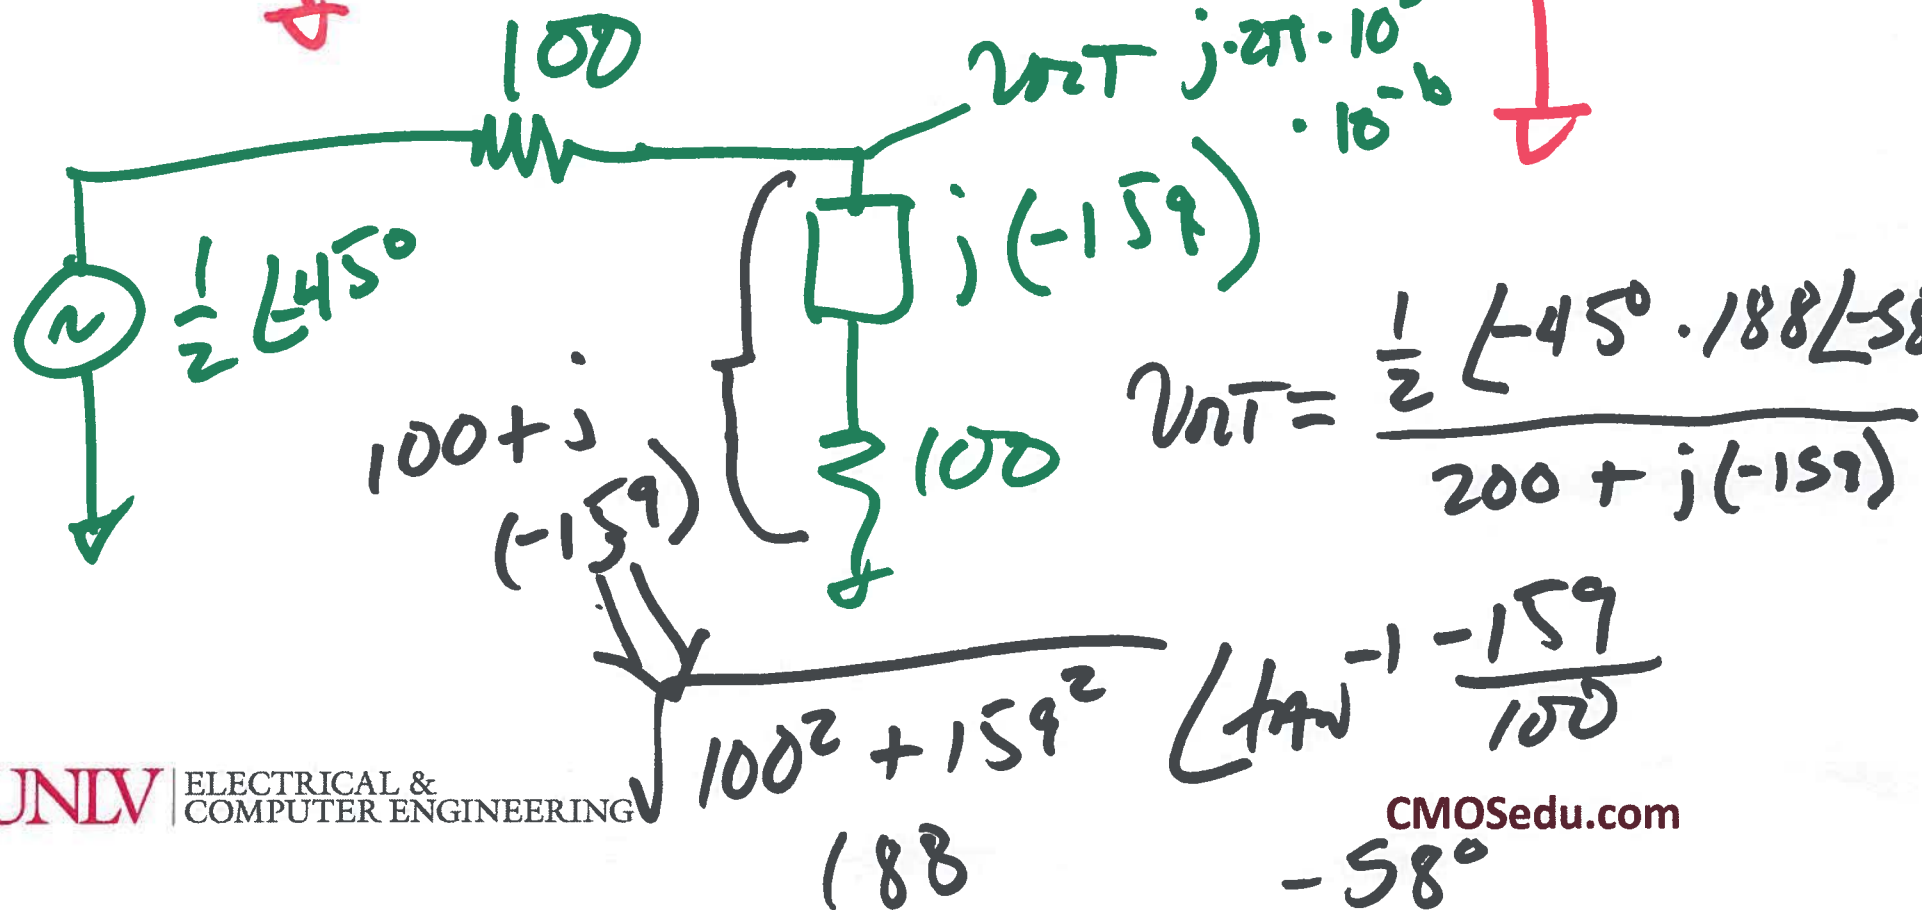 100
VOUT j·2π·10
·10^-6
j(-159)
1/2 ∠-45°
100+j
(-159)
100
VOUT = 1/2 ∠-45° · 188∠-58
200 + j(-159)
√100² + 159² ∠tan^-1 -159/100
188
-58°
UNLV ELECTRICAL &
COMPUTER ENGINEERING
CMOSedu.com